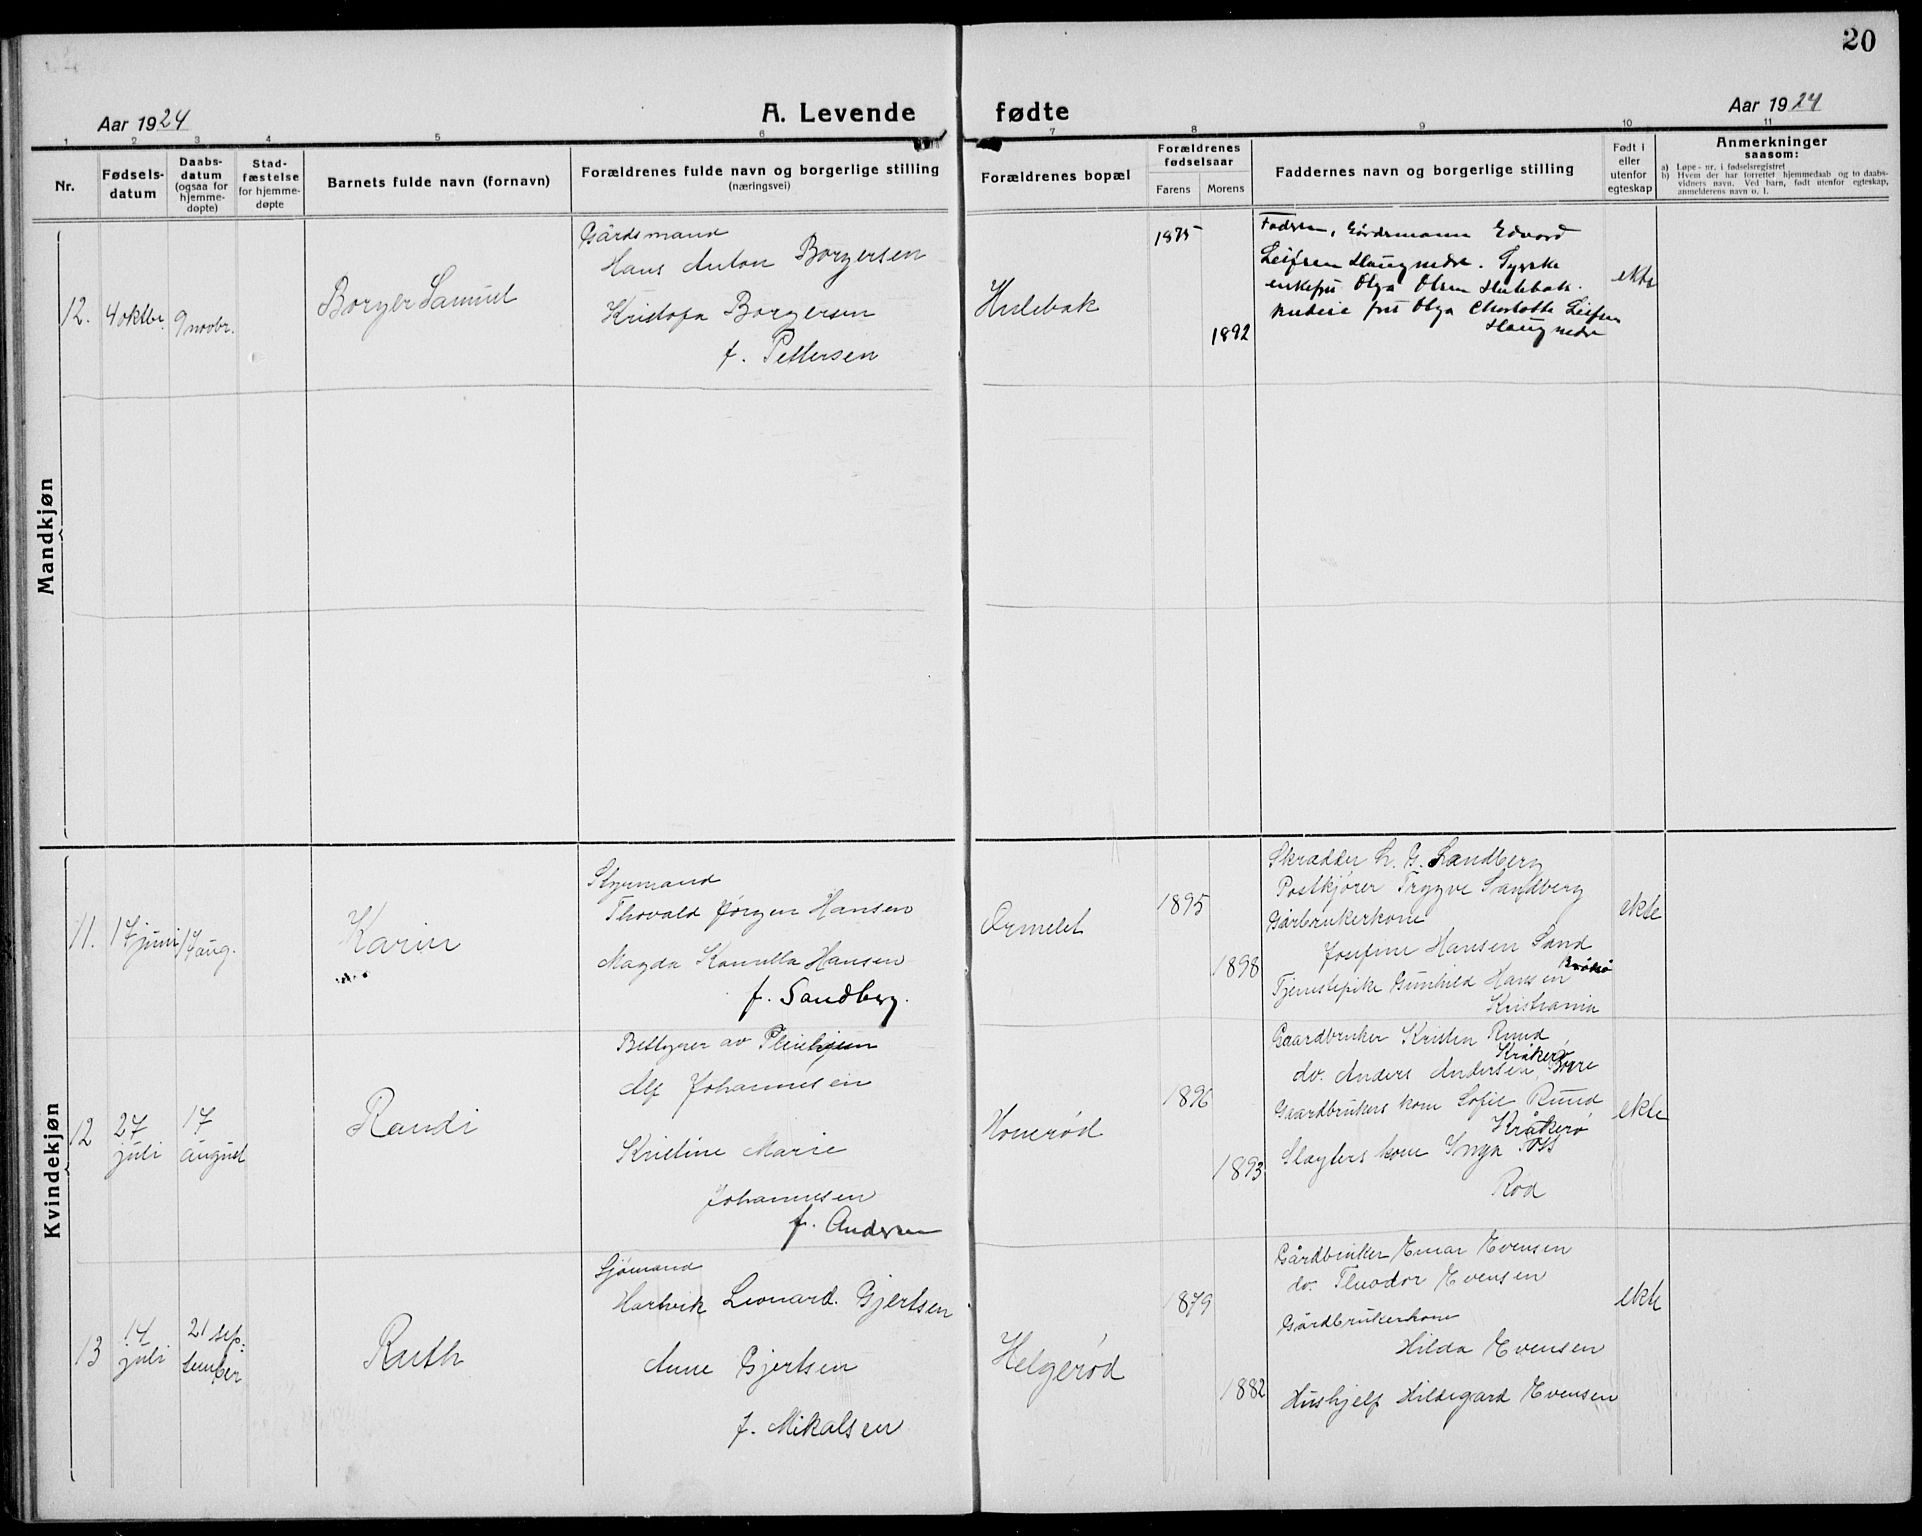 20
Aar 1924
A. Levende fødte
Aar 1924
1 2 3 4 5 6 7 8 9 10 11
Nr.
Fødsels-
datum
Daabs-
datum
(ogsaa for
hjemme-
døpte)
Stad-
fæstelse
for hjemme-
døpte
Barnets fulde navn (fornavn)
Forældrenes fulde navn og borgerlige stilling
(næringsvei)
Forældrenes bopæl
Forældrenes
fødselsaar
Farens Morens
Faddernes navn og borgerlige stilling
Født i
eller
utenfor
egteskap
Anmerkninger
saasom:
a) Løpe-nr. i fødselsregistret
b) Hvem der har forrettet hjemmedaab og to daabs-
vidners navn. Ved barn, født utenfor egteskap,
anmelderens navn o. l.
Mandkjøn
12.
4 oktbr.
9 novbr.
Borger Samuel
Gårdsmand
Hans Anton Borgersen
Kristofa Borgersen
f. Pettersen
Hulebak
1875
1892
Faderen, Gårdsmann Edvard
Leifsen Haug nedre.
enkefru Olga Olsen Hulebak.
fru Olga Charlotte Leifsen
Haug nedre
ekte
Kvindekjøn
11.
17 juni
17 aug.
Karin
Styrmand
Thovald Jørgen Hansen
Magda Kamilla Hansen
f. Sandberg.
Ormelet
1895
1898
Skrædder L. G. Sandberg
Postkjører Trygve Sandberg
Gårbrukerkone
Josefine Hansen Sand
Tjenestepike Gunhild Hansen
Kristiania
ekte
12
27
juli
17
august
Randi
Bestyrer av Pleiehjem
Alf Johannesen
Kristine Marie
Johannesen
f. Andersen
Honerød
1896
1893
Gaardbruker Kristen Ruud
Kråkerø
do. Anders Andersen, Borre
Gaardbrukers kone Sofie Ruud
Kråkerø
Slagters kone Inga Oss
Rød
ekte
13
14
juli
21 sep-
tember
Ruth
Sjømand
Hartvik Leonard Gjertsen
Anne Gjertsen
f. Mikalsen
Helgerød
1879
1882
Gårdbruker Einar Evensen
do. Theodor Evensen
Gårdbrukerkone
Hilda Evensen
Hushjelp Hildegard Evensen
ekte